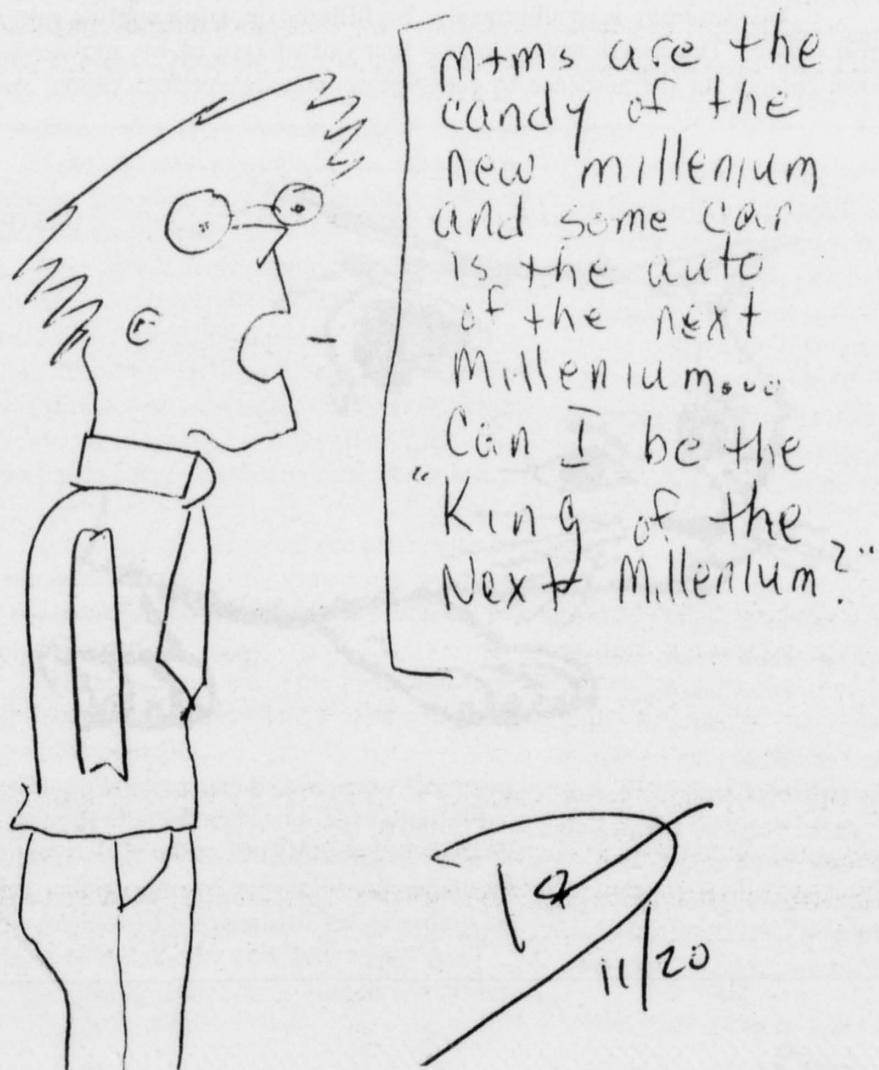 M+ms are the
candy of the
new millenium
and some car
is the auto
of the next
Millenium...
Can I be the
"King of the
Next Millenium?"
11/20